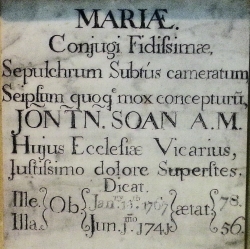 MARIÆ.
Conjugi Fidissimæ,
Sepulchrum Subtùs cameratum
Seipsum quoqe mox concepturũ
JOÑTÑ. SOAN A.M.
Hujus Ecclesiæ Vicarius,
Justissimo dolore Superstes.
Dicat.
Ille. Ob: Jan. 1767 ætat: 78.
Illa. Jun. 1mo 1743 56.